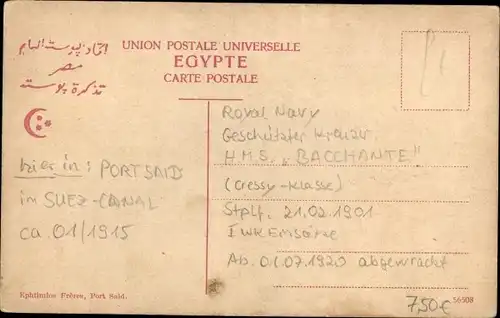 UNION POSTALE UNIVERSELLE
EGYPTE
CARTE POSTALE
مصر
تذكرة پوستة
Royal Navy
Geschützter Kreuzer
H.M.S. „BACCHANTE"
(Cressy-Klasse)
Stplf. 21.02.1901
I WK Einsätze
Ab 01.07.1920 abgewrackt
hier in: PORT SAID
im SUEZ-CANAL
ca. 01/1915
Ephtimios Frères, Port Said.
7,50€
56508